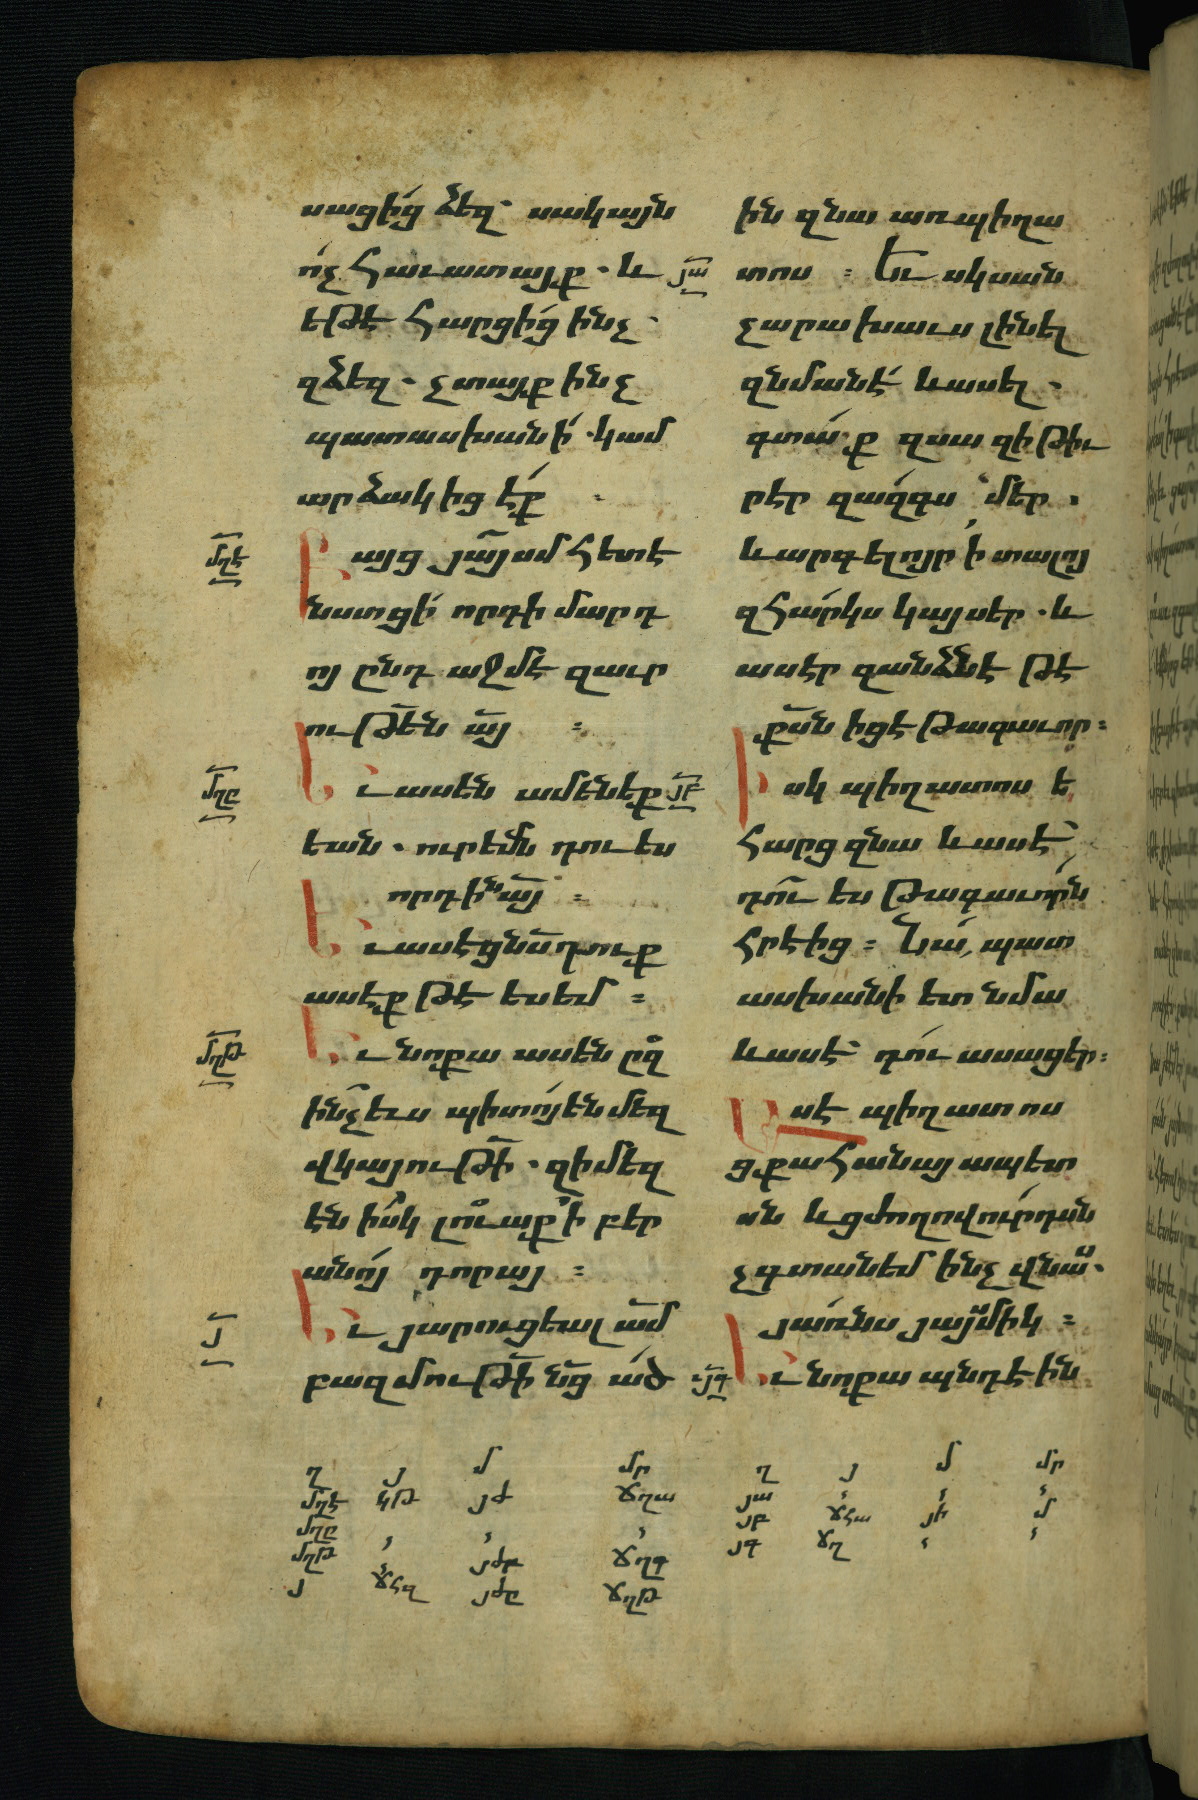 սացից ձեզ· սակայն
ոչ հաւատայք · և
եթէ հարցից ինչ·
զձեզ · չտայք ինչ
պատասխանի · կամ
արձակիցէք ·
մղէ
այց յայսմ հետէ
նստցի որդի մարդ
ոյ ընդ աջմէ զաւր
ութեն այ ։
մղը
Եւ ասեն ամենեք
եան · ուրեմն դու ես
որդին այ ։
Եւ ասէ ցնսա դուք
ասէք թէ ես եմ ։
մղթ
Եւ նոքա ասեն ըզ
ինչ ևս պիտոյ են մեզ
վկայութի · զի մեզ
էն իսկ լուաք ի բեր
անոյ դորայ ։
յ
Եւ յարուցեալ ամ
բազմութի նց ած
ին զնա առ պիղա
յա
տոս ։ Եւ սկսան
չարախաւս լինել
զնմանէ և ասել ·
գտաք զսա զի թիւ
րէր զազգս մեր ·
և արգելոյր ի տալոյ
զհարկս կայսեր · և
ասէր զանձնէ թէ
քսն իցէ թագաւոր ։
յբ
Իսկ պիղատոս ե
հարց զնա և ասէ
դու ես թագաւորն
հրէից ։ Նա պատ
ասխանի ետ նմա
և ասէ դու ասացեր ։
Ասէ պիղատոս
ցքահանայապետ
սն և ցժողովուրդսն
չգտանեմ ինչ վնաս ·
յառնս յայսմիկ ։
յգ
Եւ նոքա պնդէին
ղ յ մ մր
մղէ կթ յժ ճղա
մղը
մղթ յժբ ճղգ
յ ճհզ յժը ճղթ
ղ յ մ մր
յա
յբ ճհա յի մ
յգ ճղ